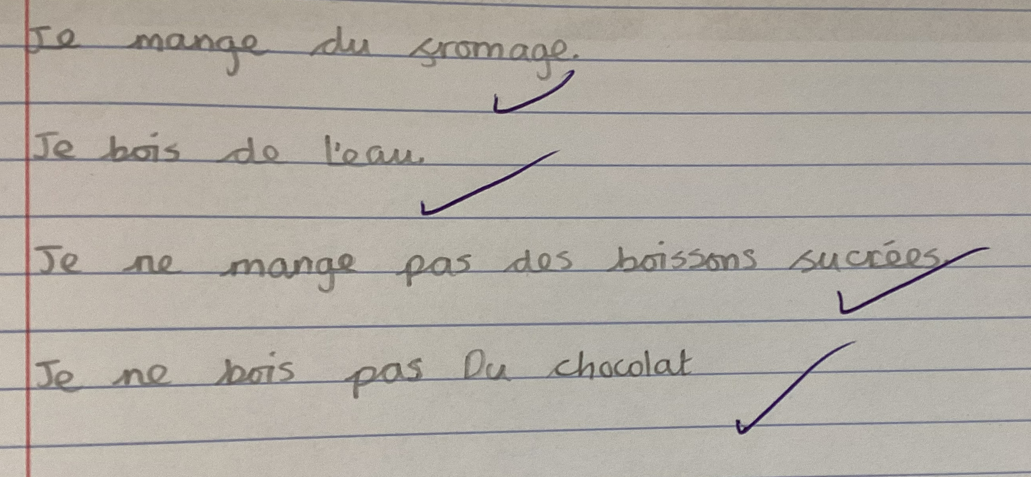 Je mange du fromage.
Je bois de l'eau.
Je ne mange pas des boissons sucrées.
Je ne bois pas Du chocolat